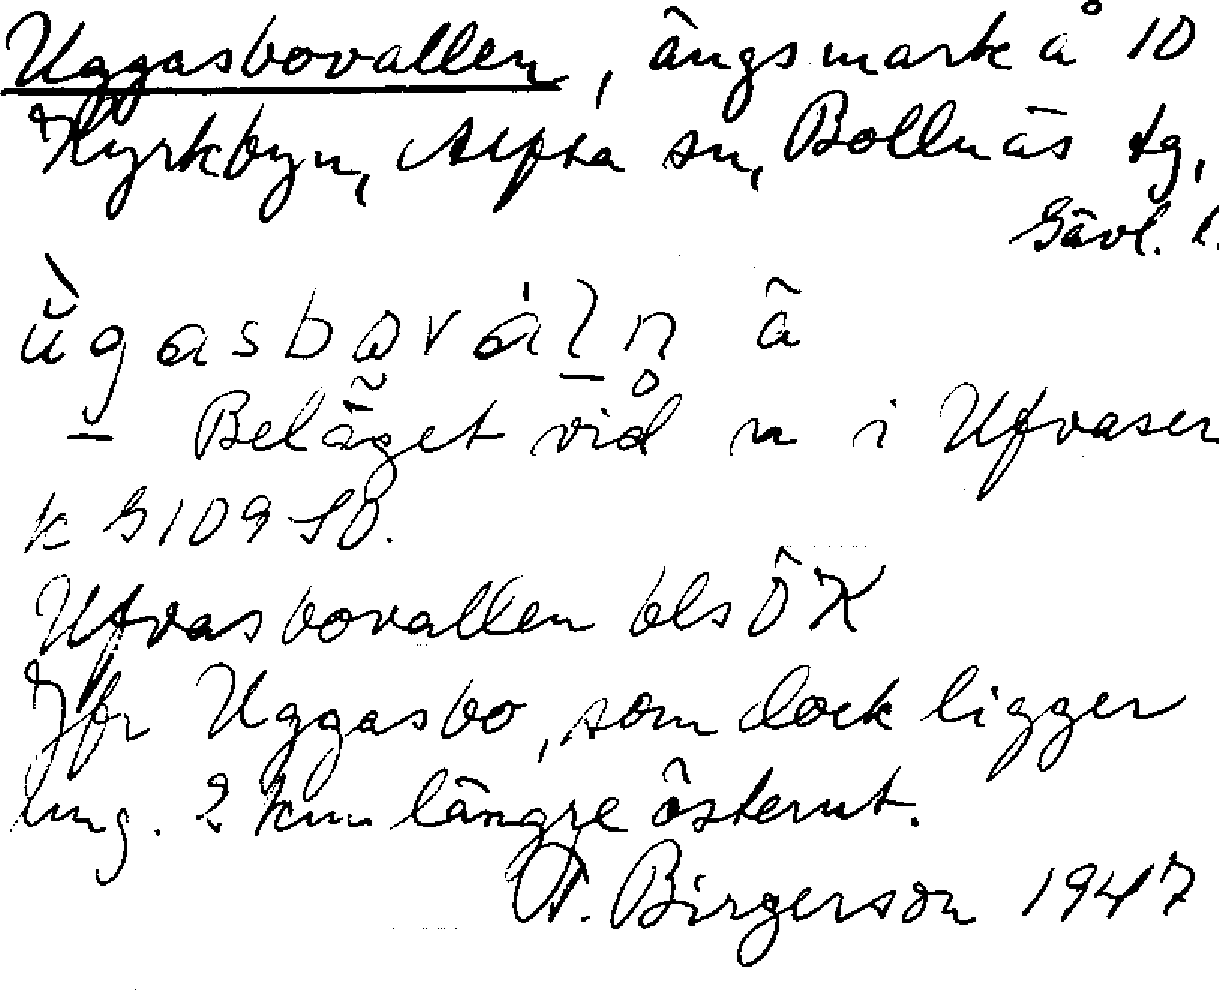 Uggasbovallen, ängsmark å 10
Kyrkbyn, Alfta sn, Bollnäs tg,
Gävl. l.
ùgasbováln ä
Beläget vid n i Ufvaser
k G 109 SO.
Ufvasbovallen bls ÖK
Jfr Uggasbo, som dock ligger
ung. 2 km längre österut.
A. Birgerson 1947